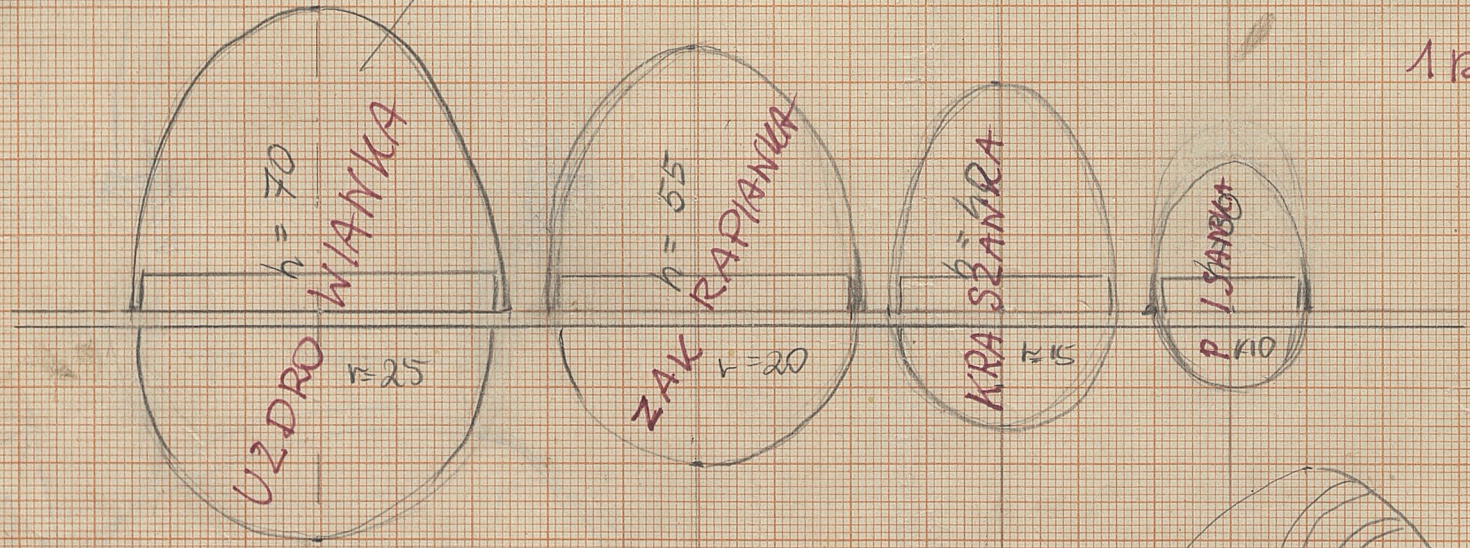 h = 70
UZDRO WIANKA
r=25
h = 55
ZAK RAPIANKA
r=20
KRA SZANRA
r=15
P
r10
1